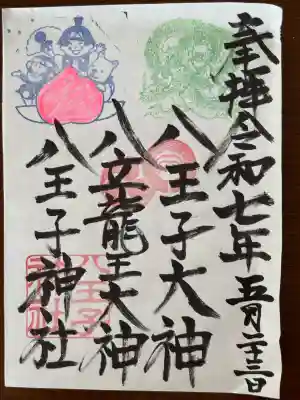 奉拝令和七年五月二十三日
八王子大神
八立龍王大神
八王子神社
八王子
神社